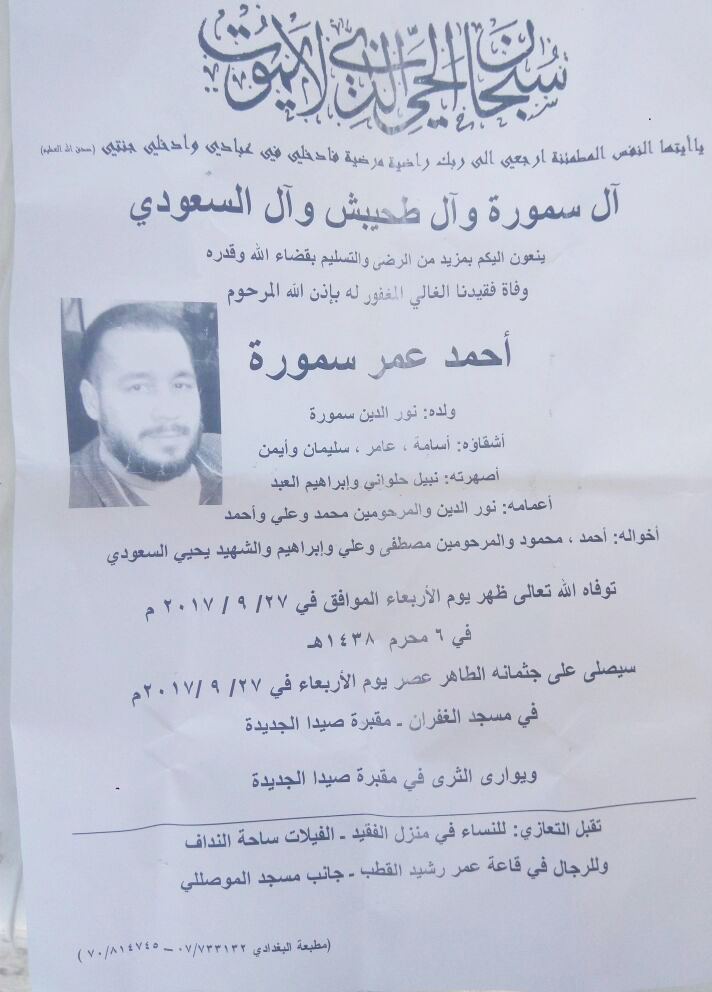 سبحان الحي الذي لا يموت
يا أيتها النفس المطمئنة ارجعي الى ربك راضية مرضية فادخلي في عبادي وادخلي جنتي (صدق الله العظيم)
آل سمورة وآل طحيبش وآل السعودي
ينعون اليكم بمزيد من الرضى والتسليم بقضاء الله وقدره
وفاة فقيدنا الغالي المغفور له بإذن الله المرحوم
أحمد عمر سمورة
ولده: نور الدين سمورة
أشقاؤه: أسامة ، عامر ، سليمان وأيمن
أصهرته: نبيل حلواني وإبراهيم العبد
أعمامه: نور الدين والمرحومين محمد وعلي وأحمد
أخواله: أحمد ، محمود والمرحومين مصطفى وعلي وإبراهيم والشهيد يحيي السعودي
توفاه الله تعالى ظهر يوم الأربعاء الموافق في ٢٧/ ٩ / ٢٠١٧ م
في ٦ محرم ١٤٣٨هـ
سيصلى على جثمانه الطاهر عصر يوم الأربعاء في ٢٧/ ٩ /٢٠١٧م
في مسجد الغفران ـ مقبرة صيدا الجديدة
ويوارى الثرى في مقبرة صيدا الجديدة
تقبل التعازي: للنساء في منزل الفقيد ـ الفيلات ساحة النداف
وللرجال في قاعة عمر رشيد القطب ـ جانب مسجد الموصللي
(مطبعة البغدادي ٠٧/٧٣٣١٣٢ – ٧٠/٨١٤٧٤٥)